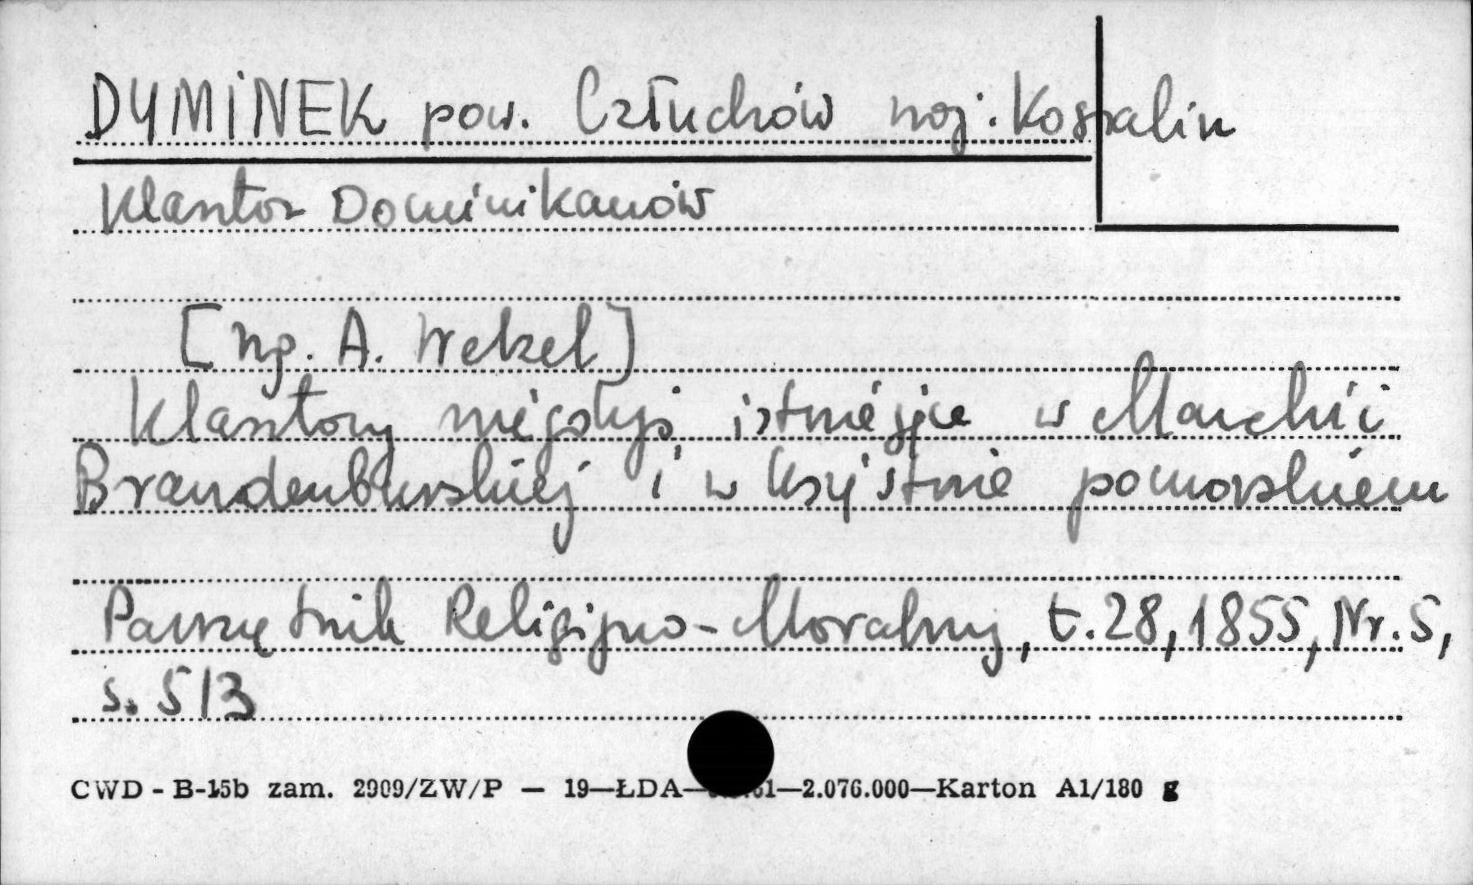 DYMINEK pow. Człuchów woj. Koszalin
Klasztor Dominikanów
[np. A. Wekel]
Klasztory niegdyś istniejące w Marchii
Brandenburskiej i w Księstwie pomorskiem
Pamiętnik Religijno-Moralny, t. 28, 1855, Nr. 5,
s. 513
CWD - B-15b zam. 2909/ZW/P — 19—ŁDA— 61—2.076.000—Karton A1/180 g